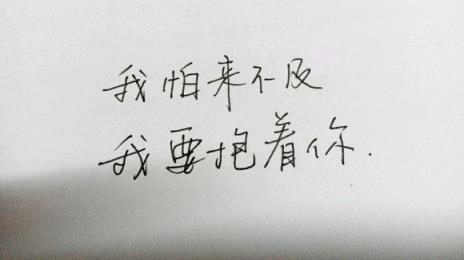 我怕来不及
我要抱着你.